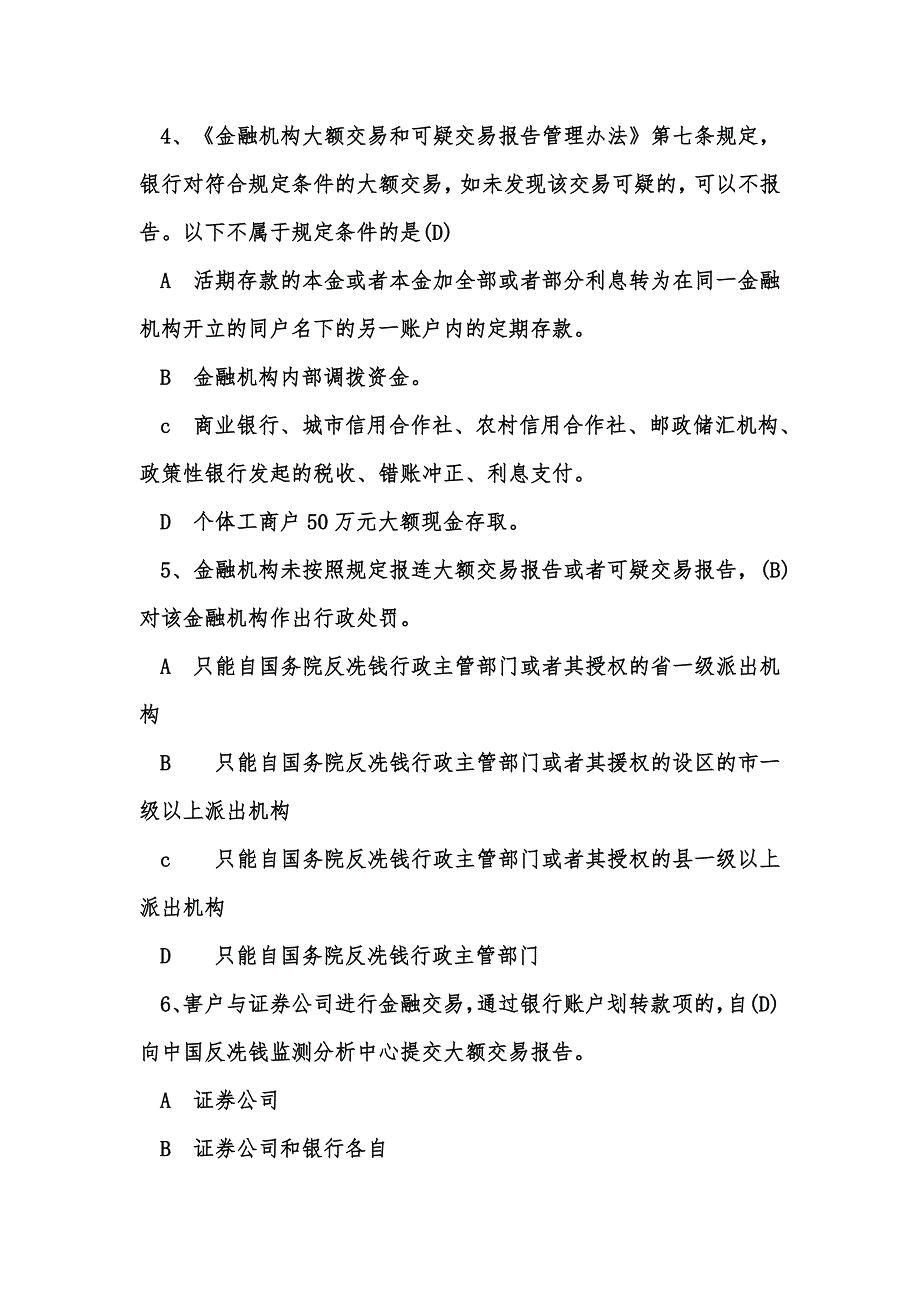 4、《金融机构大额交易和可疑交易报告管理办法》第七条规定，
银行对符合规定条件的大额交易，如未发现该交易可疑的，可以不报
告。以下不属于规定条件的是(D)
A 活期存款的本金或者本金加全部或者部分利息转为在同一金融
机构开立的同户名下的另一账户内的定期存款。
B 金融机构内部调拨资金。
c 商业银行、城市信用合作社、农村信用合作社、邮政储汇机构、
政策性银行发起的税收、错账冲正、利息支付。
D 个体工商户 50 万元大额现金存取。
5、金融机构未按照规定报连大额交易报告或者可疑交易报告，(B)
对该金融机构作出行政处罚。
A 只能自国务院反冼钱行政主管部门或者其授权的省一级派出机
构
B 只能自国务院反冼钱行政主管部门或者其援权的设区的市一
级以上派出机构
c 只能自国务院反冼钱行政主管部门或者其授权的县一级以上
派出机构
D 只能自国务院反冼钱行政主管部门
6、害户与证券公司进行金融交易，通过银行账户划转款项的，自(D)
向中国反冼钱监测分析中心提交大额交易报告。
A 证券公司
B 证券公司和银行各自